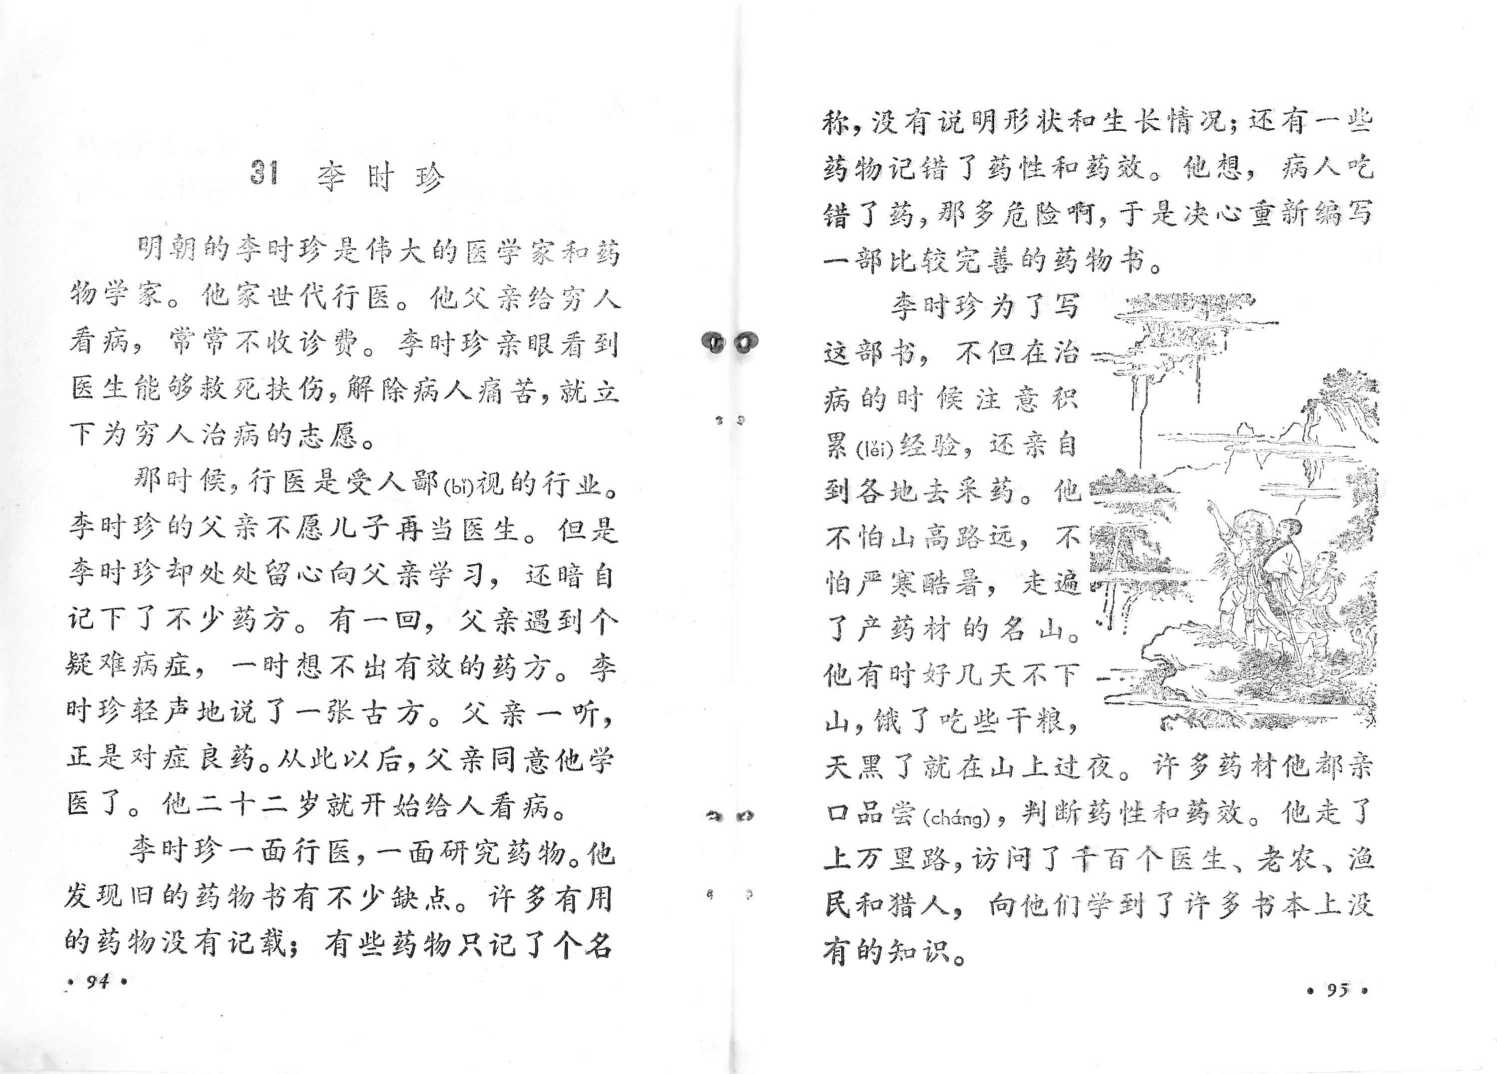 31 李时珍
明朝的李时珍是伟大的医学家和药
物学家。他家世代行医。他父亲给穷人
看病，常常不收诊费。李时珍亲眼看到
医生能够救死扶伤，解除病人痛苦，就立
下为穷人治病的志愿。
那时候，行医是受人鄙(bǐ)视的行业。
李时珍的父亲不愿儿子再当医生。但是
李时珍却处处留心向父亲学习，还暗自
记下了不少药方。有一回，父亲遇到个
疑难病症，一时想不出有效的药方。李
时珍轻声地说了一张古方。父亲一听，
正是对症良药。从此以后，父亲同意他学
医了。他二十二岁就开始给人看病。
李时珍一面行医，一面研究药物。他
发现旧的药物书有不少缺点。许多有用
的药物没有记载；有些药物只记了个名
·94·
称，没有说明形状和生长情况；还有一些
药物记错了药性和药效。他想，病人吃
错了药，那多危险啊，于是决心重新编写
一部比较完善的药物书。
李时珍为了写
这部书，不但在治
病的时候注意积
累(lěi)经验，还亲自
到各地去采药。他
不怕山高路远，不
怕严寒酷暑，走遍
了产药材的名山。
他有时好几天不下
山，饿了吃些干粮，
天黑了就在山上过夜。许多药材他都亲
口品尝(cháng)，判断药性和药效。他走了
上万里路，访问了千百个医生、老农、渔
民和猎人，向他们学到了许多书本上没
有的知识。
·95·